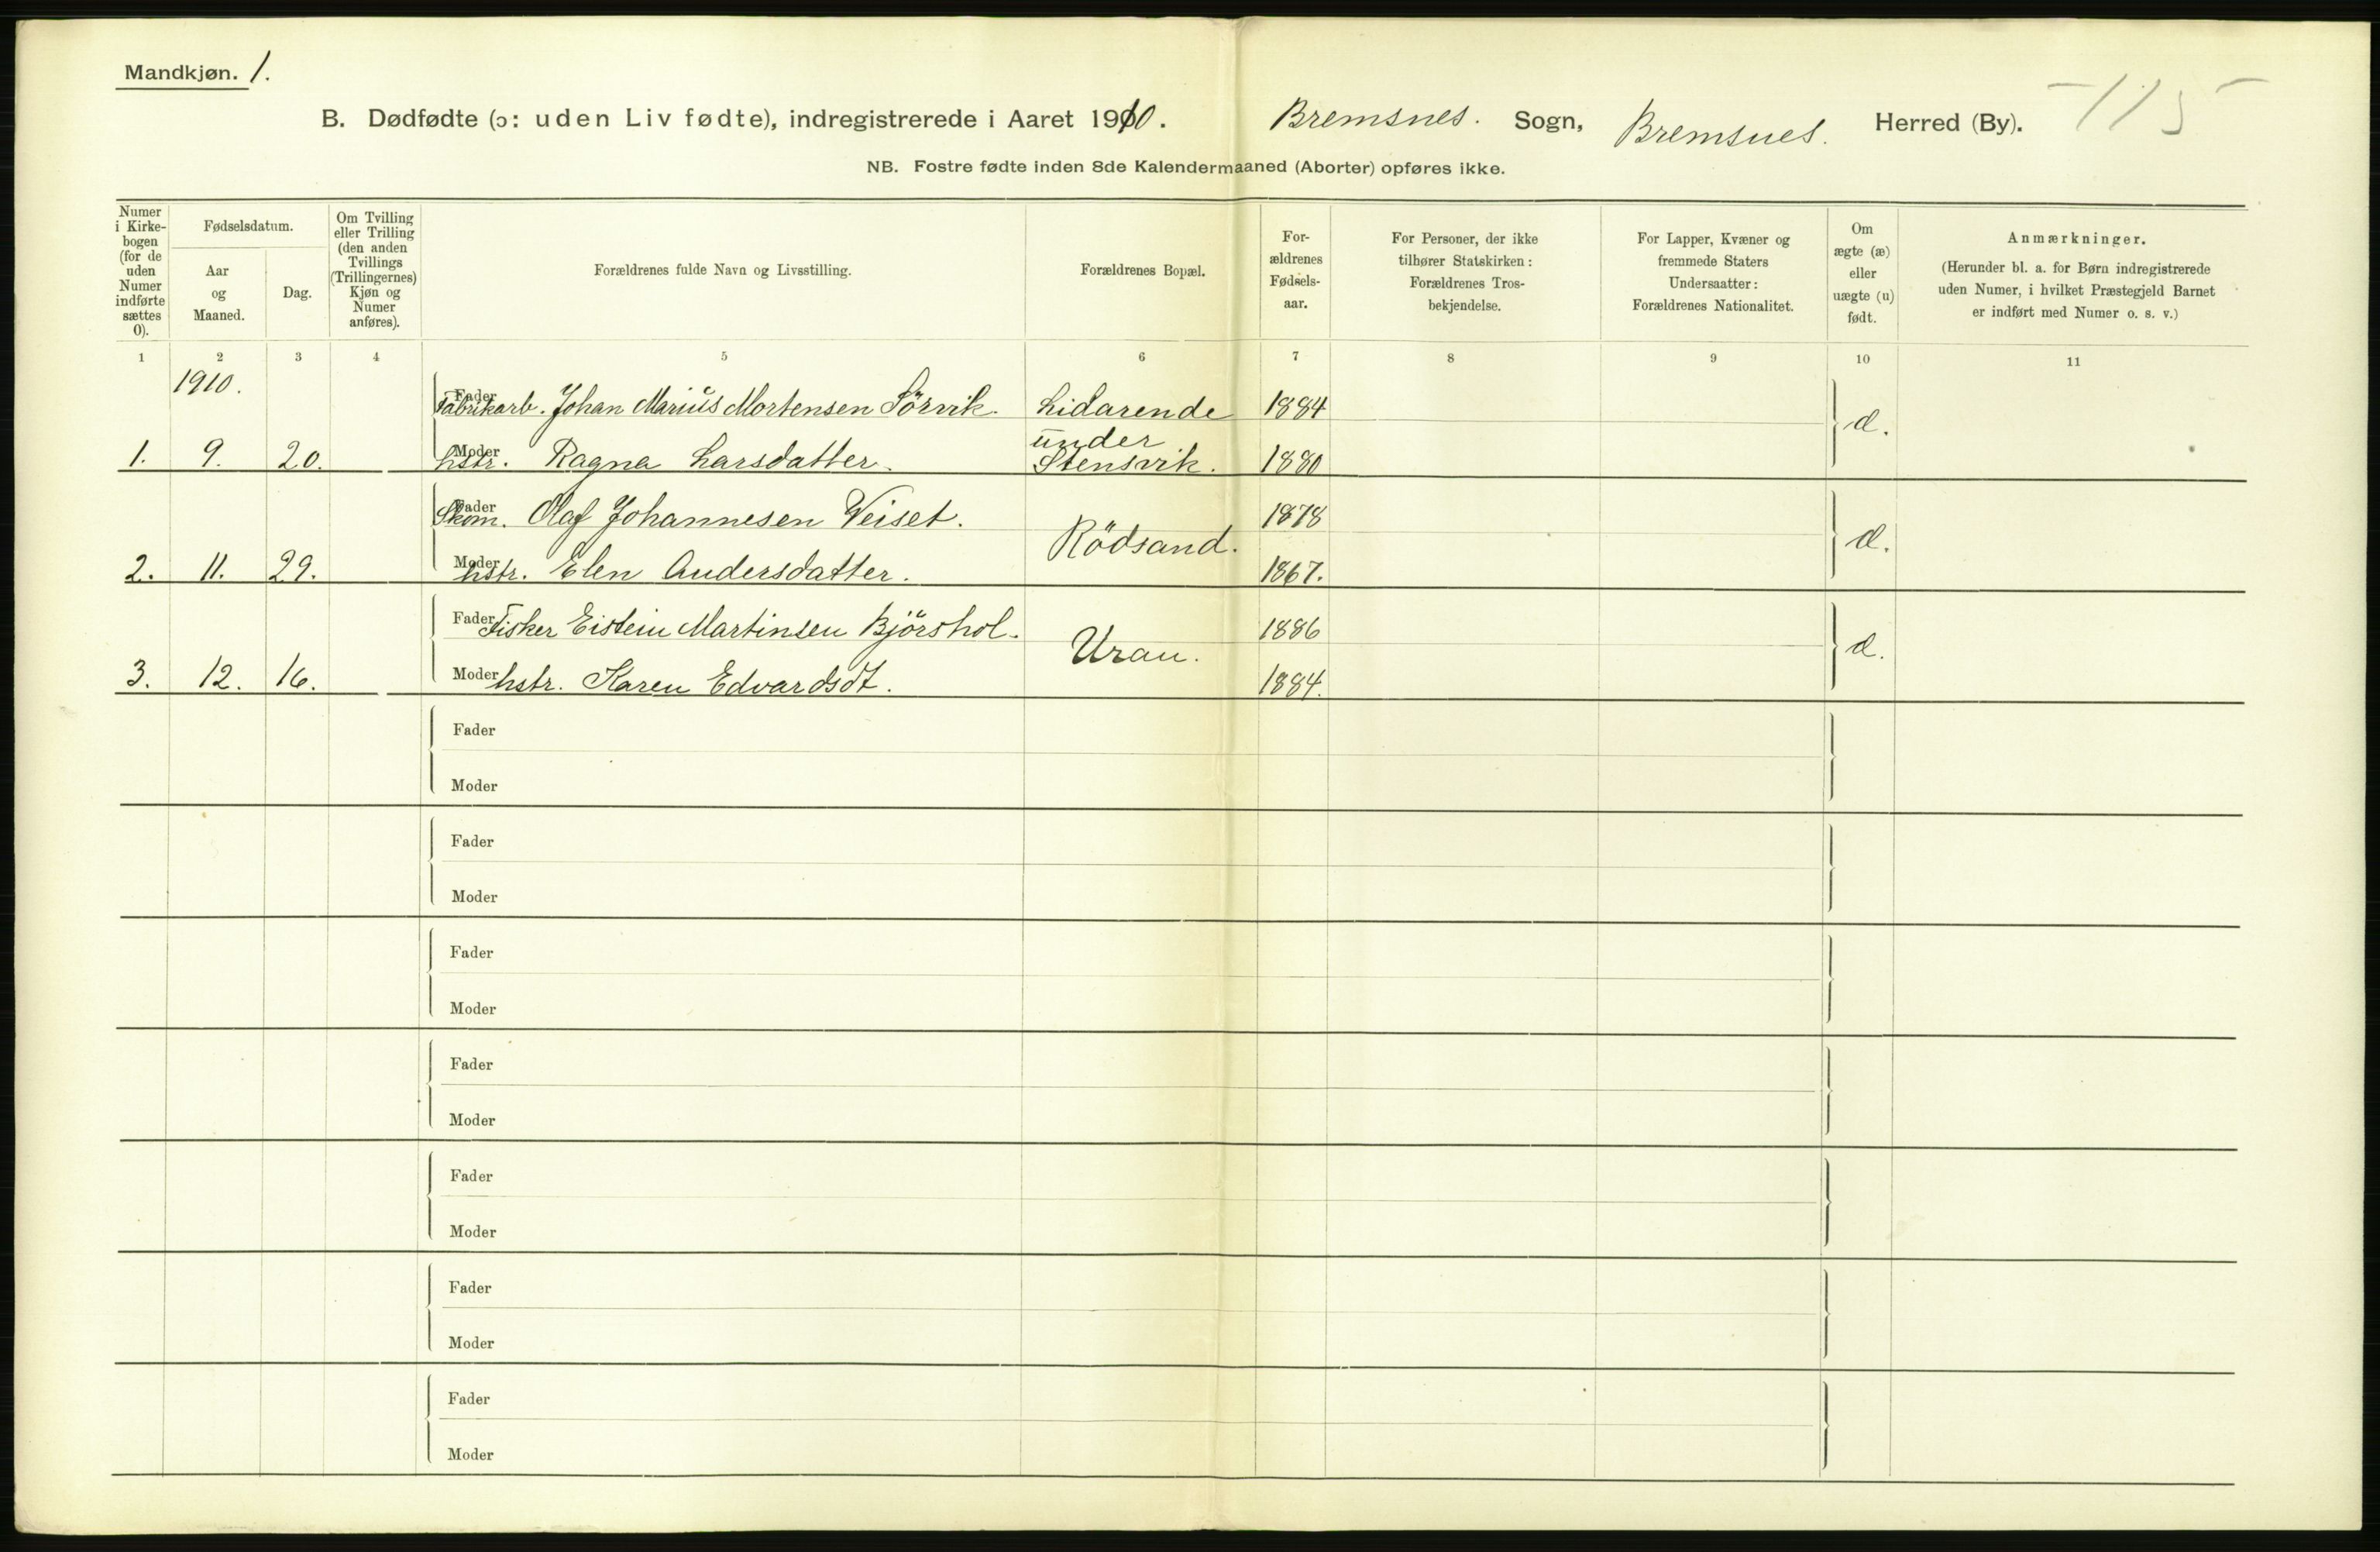 Mandkjøn. 1.
B. Dødfødte (ɔ: uden Liv fødte), indregistrerede i Aaret 1910. Bremsnes. Sogn, Bremsnes. Herred (By). 115
NB. Fostre fødte inden 8de Kalendermaaned (Aborter) opføres ikke.
Numer i Kirke-bogen (for de uden Numer indførte sættes 0).
Fødselsdatum.
Aar og Maaned.
Dag.
Om Tvilling eller Trilling (den anden Tvillings (Trillingernes) Kjøn og Numer anføres).
Forældrenes fulde Navn og Livsstilling.
Forældrenes Bopæl.
For-ældrenes Fødsels-aar.
For Personer, der ikke tilhører Statskirken: Forældrenes Tros-bekjendelse.
For Lapper, Kvæner og fremmede Staters Undersaatter: Forældrenes Nationalitet.
Om ægte (æ) eller uægte (u) født.
Anmærkninger.
(Herunder bl. a. for Børn indregistrerede uden Numer, i hvilket Præstegjeld Barnet er indført med Numer o. s. v.)
1 2 3 4 5 6 7 8 9 10 11
1910.
Fader Fabrikarb. Johan Marius Mortensen Sörvik. Lidarende 1884
under
1. 9. 20. Moder hstr. Ragna Larsdatter. Stensvik. 1880 æ.
Fader Skom. Olaf Johannesen Veiset. 1878
Rödsand. æ.
2. 11. 29. Moder hstr. Elen Andersdatter. 1867.
Fader Fisker Eistein Martinsen Bjørshol. 1886
Uran. æ.
3. 12. 16. Moder hstr. Karen Edvardsdt. 1884.
Fader
Moder
Fader
Moder
Fader
Moder
Fader
Moder
Fader
Moder
Fader
Moder
Fader
Moder